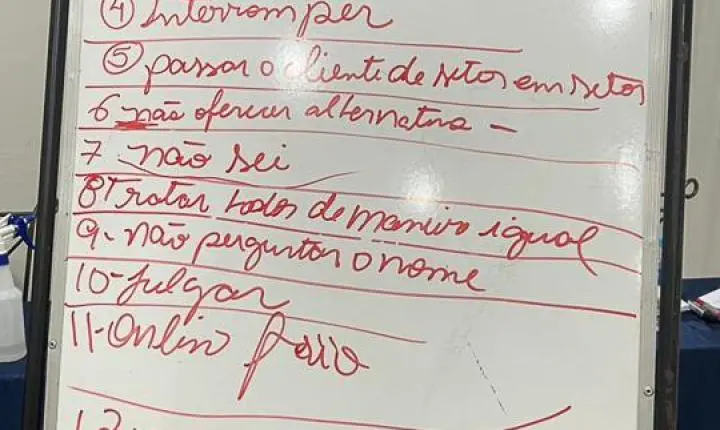 ④ Interromper
⑤ passar o cliente de setor em setor
6 não oferecer alternativa -
7 não sei
8 Tratar todos de maneira igual
9- não perguntar o nome
10- Julgar
11- Onlin frio
12